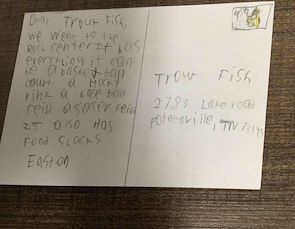 Dear Trout Fish,
we went to the
Rock center It has
everything it can
be a basket ball
court a Hocky
rink a base ball
feild a socer feild
IT also Has
food shacks
Easton
Trout Fish
2783 Lake road
Potatoville, TN 73195